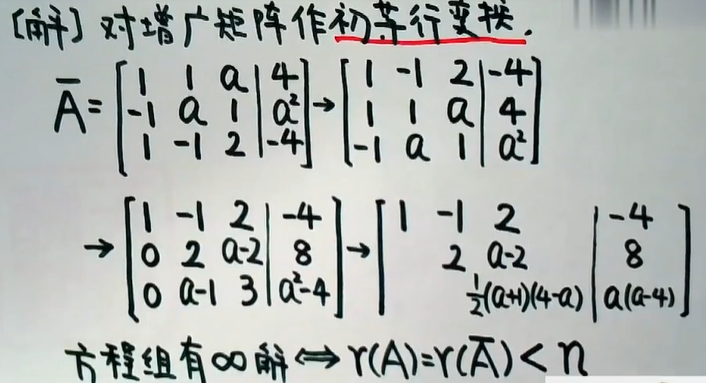 [解] 对增广矩阵作初等行变换.
Ā = [1 1 a | 4; -1 a 1 | a²; 1 -1 2 | -4] → [1 -1 2 | -4; 1 1 a | 4; -1 a 1 | a²]
→ [1 -1 2 | -4; 0 2 a-2 | 8; 0 a-1 3 | a²-4] → [1 -1 2 | -4; 2 a-2 | 8; ½(a+1)(4-a) | a(a-4)]
方程组有∞解 ⇔ r(A)=r(Ā)<n